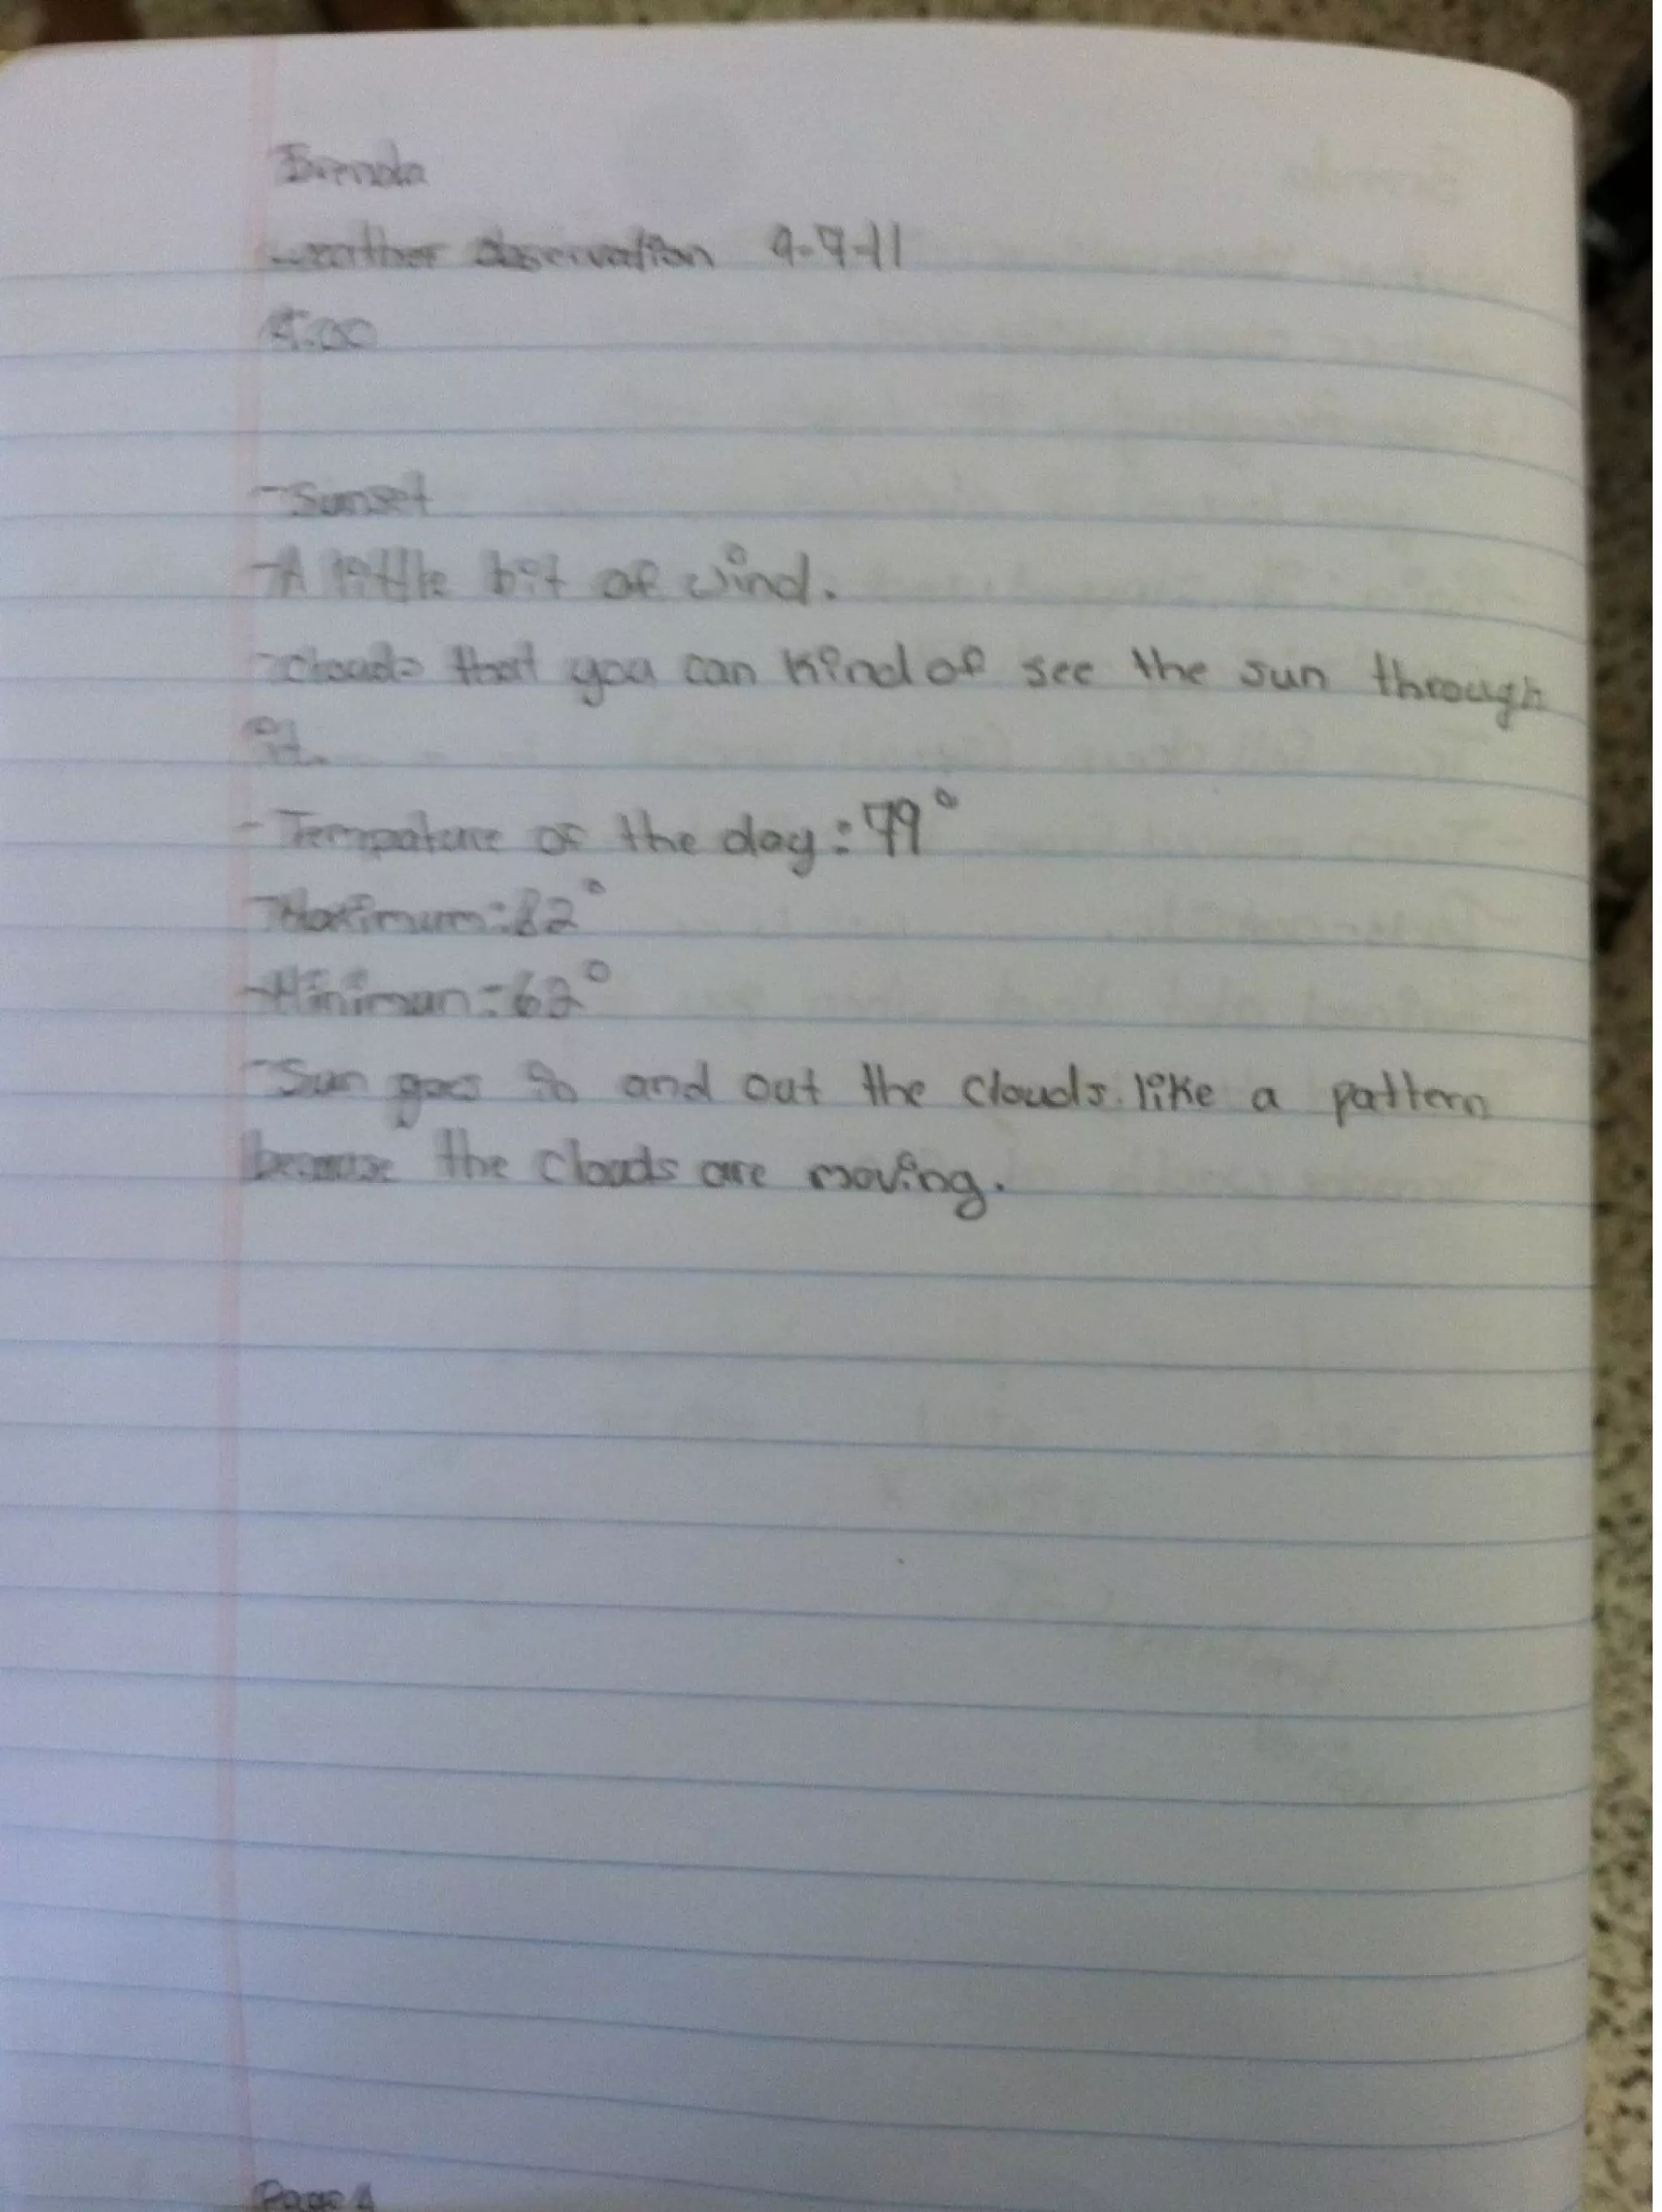 Brenda
weather observation 9-7-11
-Sunset
-A little bit of wind.
-clouds that you can kind of see the sun through
it.
-Tempature of the day: 79°
-Maximum: 82°
-Miniman: 62°
-Sun goes in and out the clouds like a pattern
because the clouds are moving.
Page 4